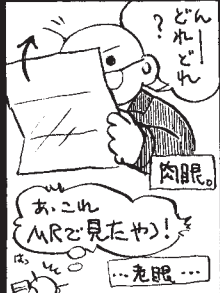 んー
どれどれ
?
肉眼。
あ、これ
MRで見たやつ!
はっ
…老眼…